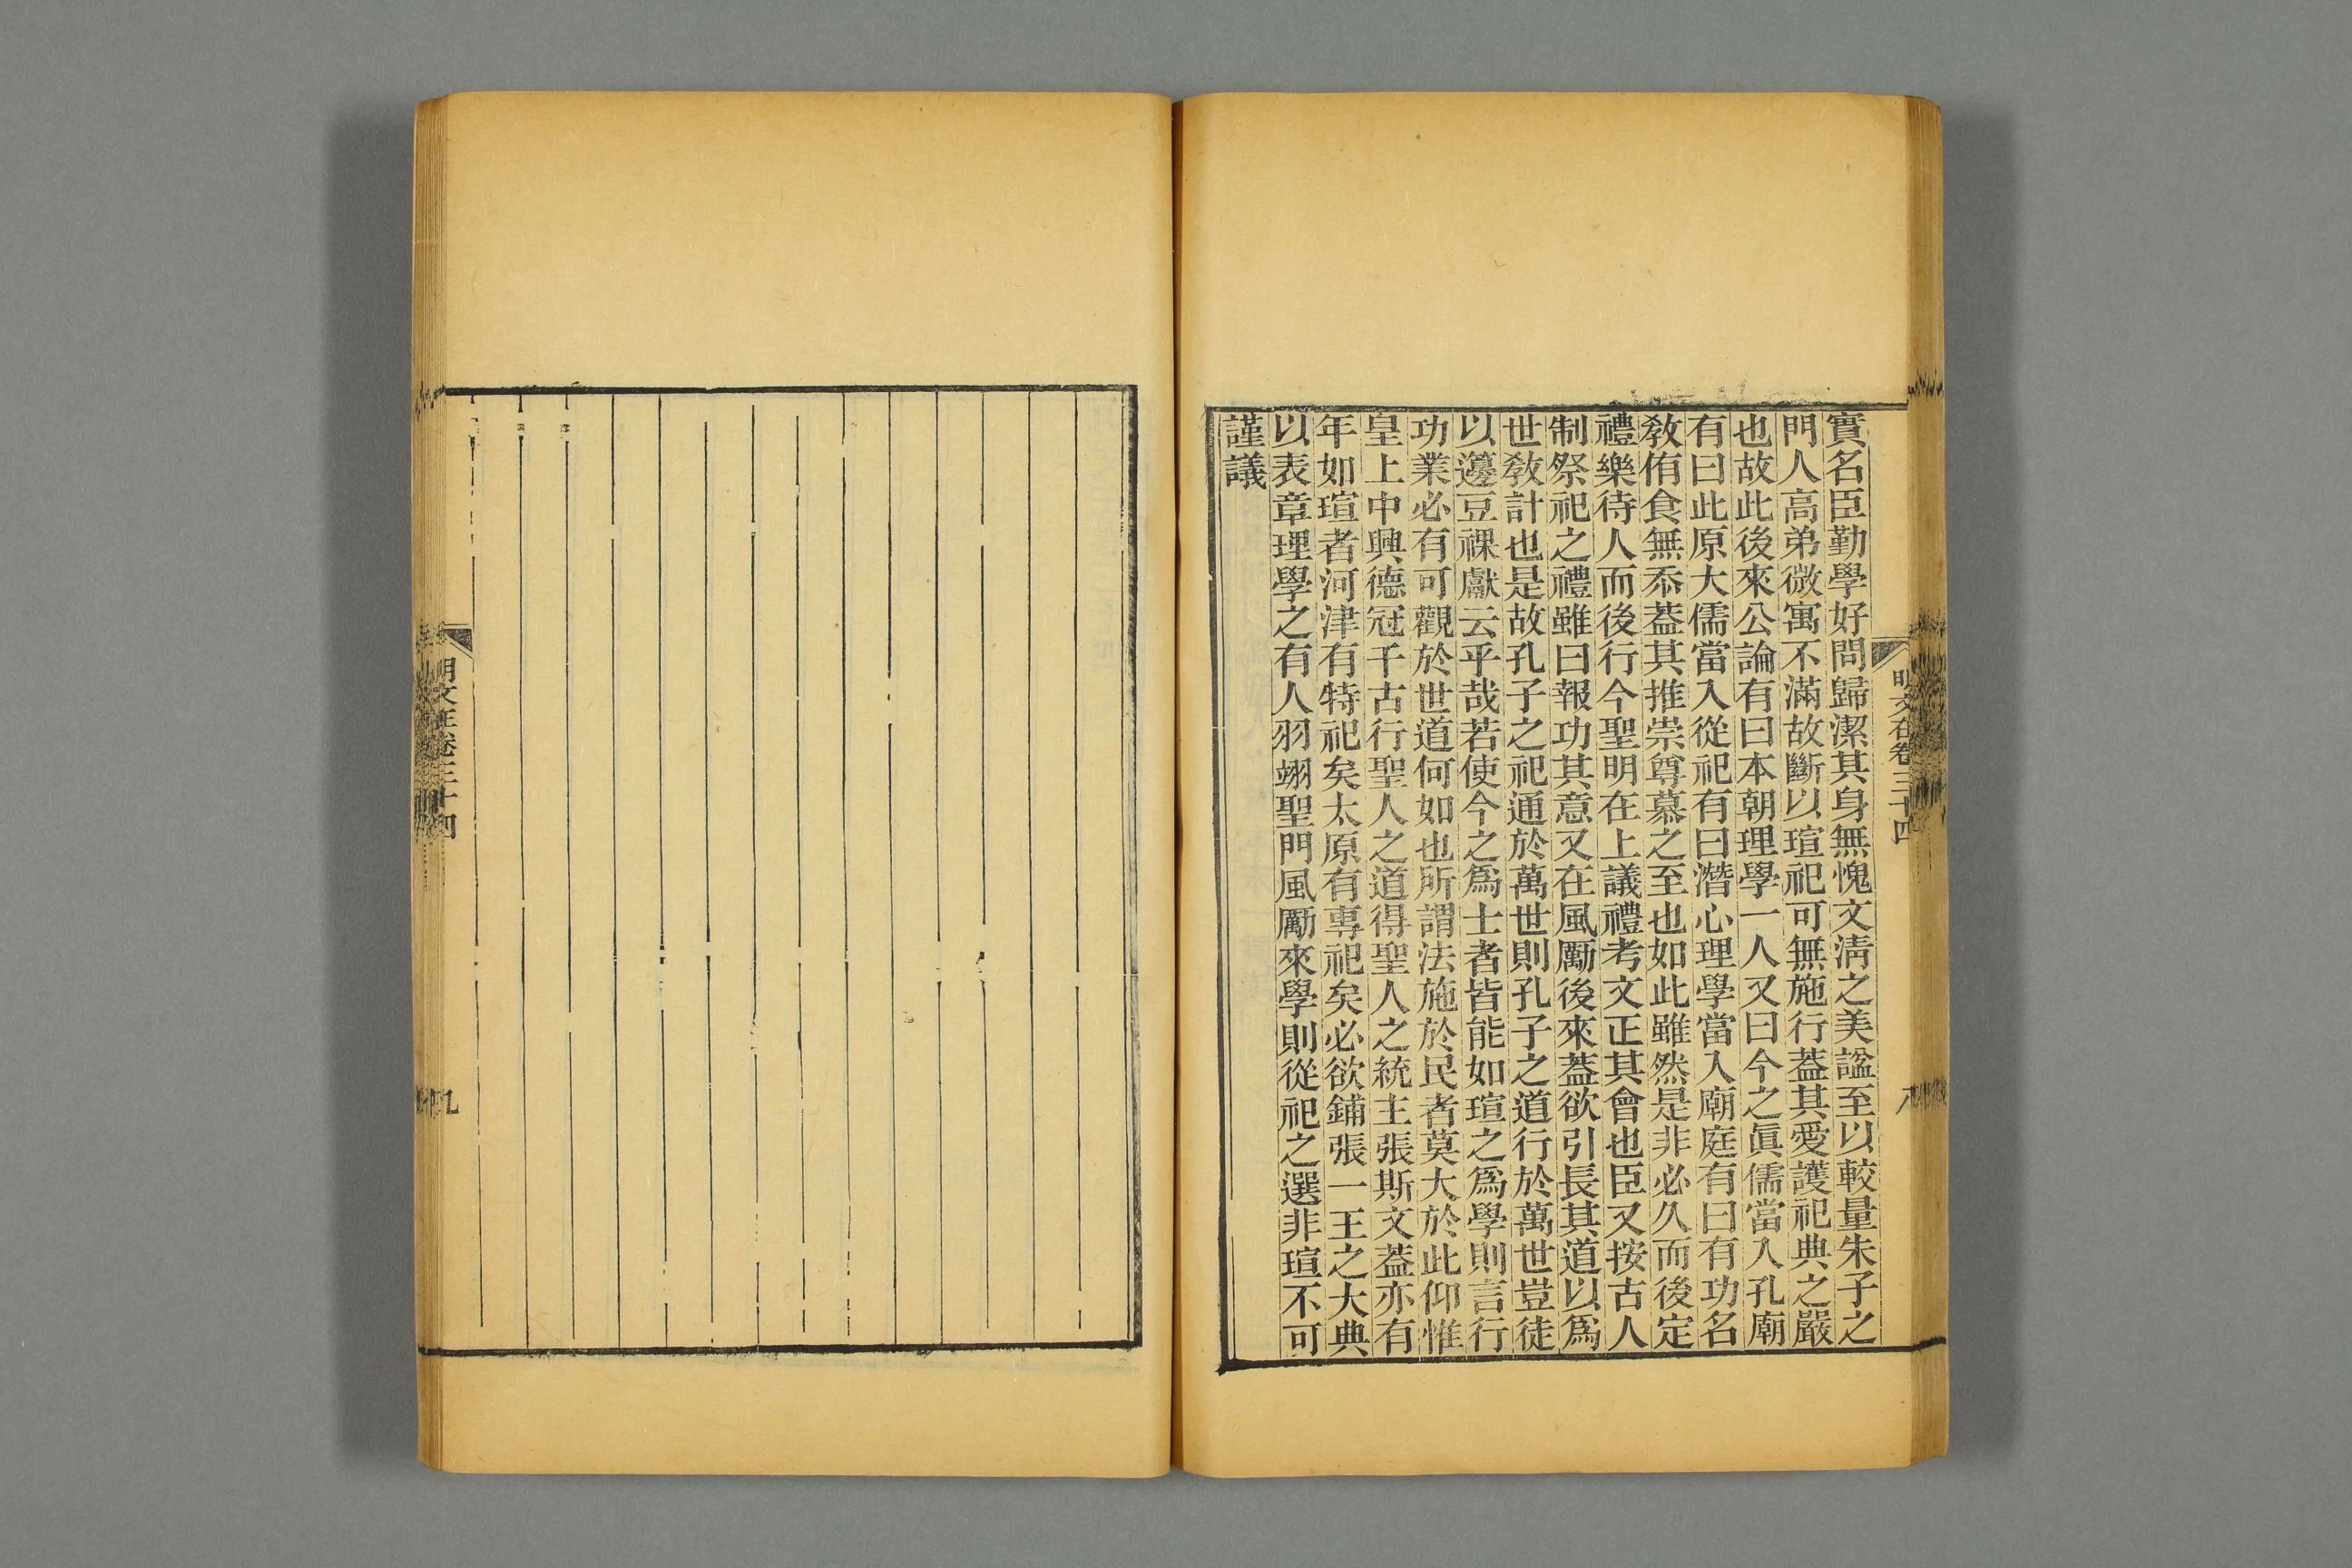 實名臣勤學好問歸潔其身無愧文淸之美諡至以較量朱子之
門人高弟微寓不滿故斷以瑄祀可無施行蓋其愛護祀典之嚴
也故此後來公論有曰本朝理學一人又曰今之眞儒當入孔廟
有曰此原大儒當入從祀有曰潛心理學當入廟庭有曰有功名
敎侑食無忝蓋其推崇尊慕之至也如此雖然是非必久而後定
禮樂待人而後行今聖明在上議禮考文正其會也臣又按古人
制祭祀之禮雖曰報功其意又在風勵後來蓋欲引長其道以爲
世敎計也是故孔子之祀通於萬世則孔子之道行於萬世豈徒
以籩豆祼獻云乎哉若使今之爲士者皆能如瑄之爲學則言行
功業必有可觀於世道何如也所謂法施於民者莫大於此仰惟
皇上中興德冠千古行聖人之道得聖人之統主張斯文蓋亦有
年如瑄者河津有特祀矣太原有專祀矣必欲鋪張一王之大典
以表章理學之有人羽翊聖門風勵來學則從祀之選非瑄不可
謹議
明文在卷三十四
八
明文在卷三十四
九